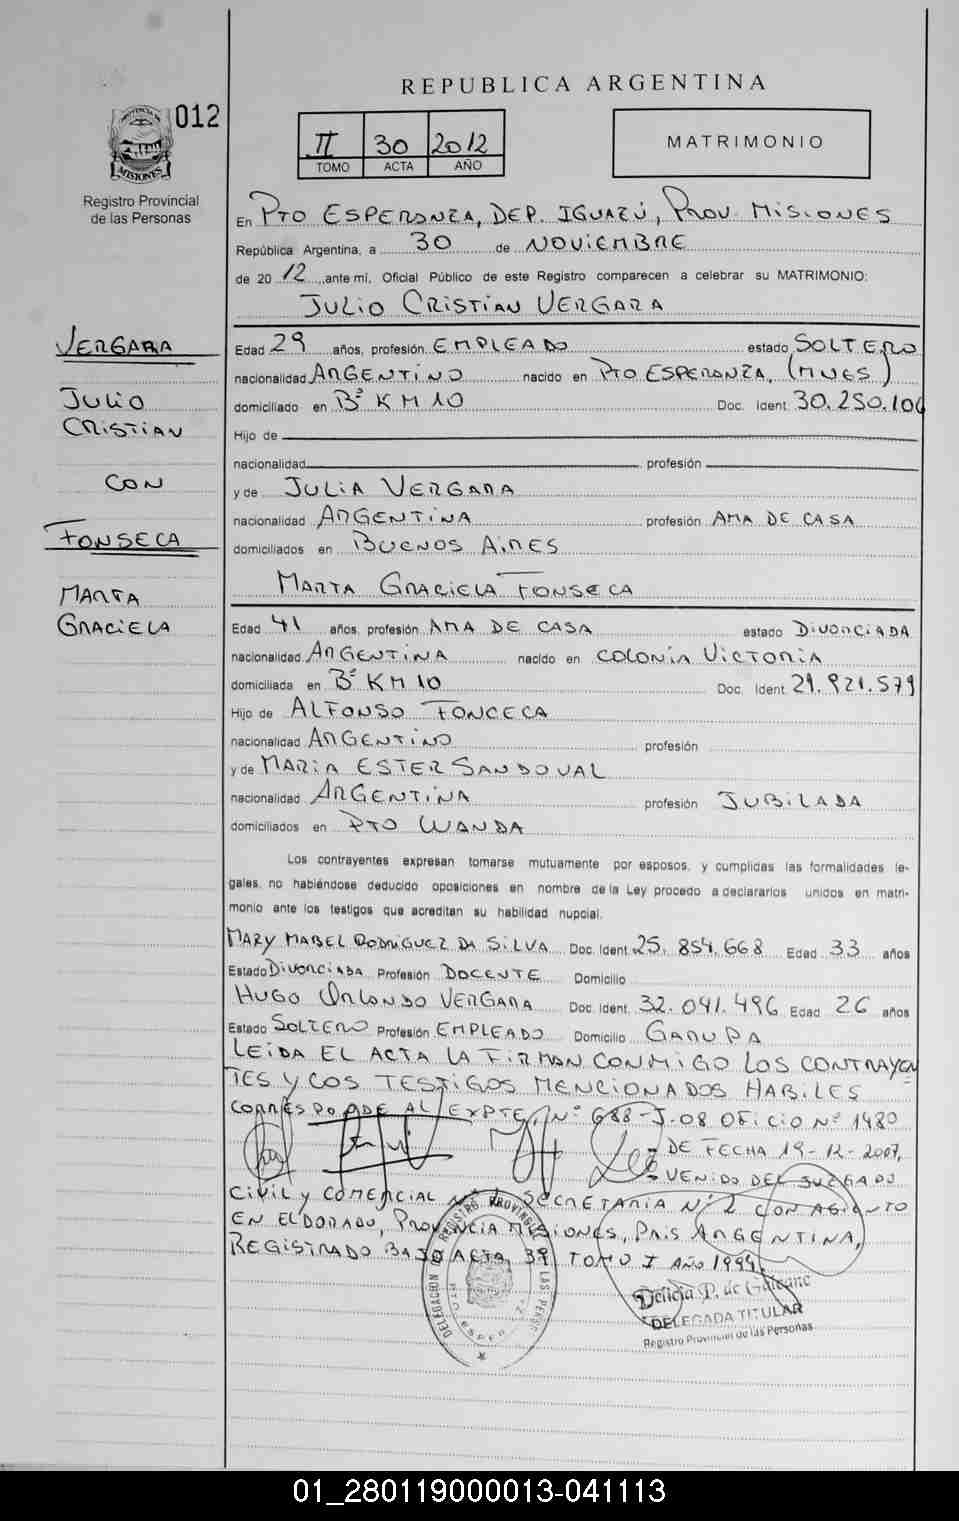 REPUBLICA ARGENTINA
012
II 30 2012
TOMO ACTA AÑO
MATRIMONIO
PROVINCIA DE
MISIONES
Registro Provincial
de las Personas
En PTO ESPERANZA, DEP. IGUAZÚ, PROV. MISIONES
República Argentina, a 30 de NOVIEMBRE
de 2012, ante mí, Oficial Público de este Registro comparecen a celebrar su MATRIMONIO:
JULIO CRISTIAN VERGARA
VERGARA
JULIO
CRISTIAN
CON
FONSECA
MARTA
GRACIELA
Edad 29 años, profesión EMPLEADO estado SOLTERO
nacionalidad ARGENTINO nacido en PTO ESPERANZA, (MNES)
domiciliado en Bº KM 10 Doc. Ident. 30.250.106
Hijo de
nacionalidad profesión
y de JULIA VERGARA
nacionalidad ARGENTINA profesión AMA DE CASA
domiciliados en BUENOS AIRES
MARTA GRACIELA FONSECA
Edad 41 años, profesión AMA DE CASA estado DIVORCIADA
nacionalidad ARGENTINA nacido en COLONIA VICTORIA
domiciliada en Bº KM 10 Doc. Ident. 21.921.579
Hijo de ALFONSO FONCECA
nacionalidad ARGENTINO profesión
y de MARIA ESTER SANDOVAL
nacionalidad ARGENTINA profesión JUBILADA
domiciliados en PTO WANDA
Los contrayentes expresan tomarse mutuamente por esposos, y cumplidas las formalidades le-
gales, no habiéndose deducido oposiciones en nombre de la Ley procedo a declararlos unidos en matri-
monio ante los testigos que acreditan su habilidad nupcial.
MARY MABEL RODRIGUEZ DA SILVA Doc. Ident. 25.854.668 Edad 33 años
Estado DIVORCIADA Profesión DOCENTE Domicilio
HUGO ORLANDO VERGARA Doc. Ident. 32.041.496 Edad 26 años
Estado SOLTERO Profesión EMPLEADO Domicilio GARUPA
LEIDA EL ACTA LA FIRMAN CONMIGO LOS CONTRAYEN
TES Y LOS TESTIGOS MENCIONADOS HABILES
CORRESPONDE AL EXPTE. Nº 688-J-08 OFICIO Nº 1480
DE FECHA 19-12-2007,
VENIDO DEL JUZGADO
CIVIL Y COMERCIAL SECRETARIA Nº 2 CON ASIENTO
EN ELDORADO, PROVINCIA MISIONES, PAIS ARGENTINA,
REGISTRADO BAJO ACTA 39 TOMO I AÑO 1994.
DELEGACION REGISTRO PROVINCIAL DE LAS PERS
PTO ESPER
Delicia P. de Galeano
DELEGADA TITULAR
Registro Provincial de las Personas
01_280119000013-041113